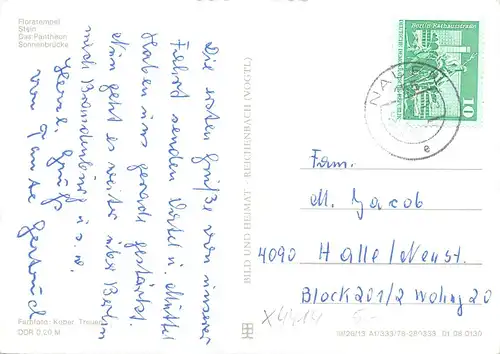 Floratempel
Stein
Das Pantheon
Sonnenbrücke
Die ersten Grüße von unserer
Fahrt senden Vater u. Mutter
Haben uns gerade gestärkt.
Nun geht es weiter über Berlin
nach Brandenburg u.s.w.
Herzl. Grüße
von Tante Gertrud
Farbfoto: Kober, Treuen
DDR 0,20 M
BILD UND HEIMAT REICHENBACH (VOGTL)
Berlin, Rathausstraße
10
NAUEN
e
Fam.
M. Jacob
4090 Halle/Neust.
Block 201/2 Wohng 20
X4414
5.-
A1/333/78 01 08 0130